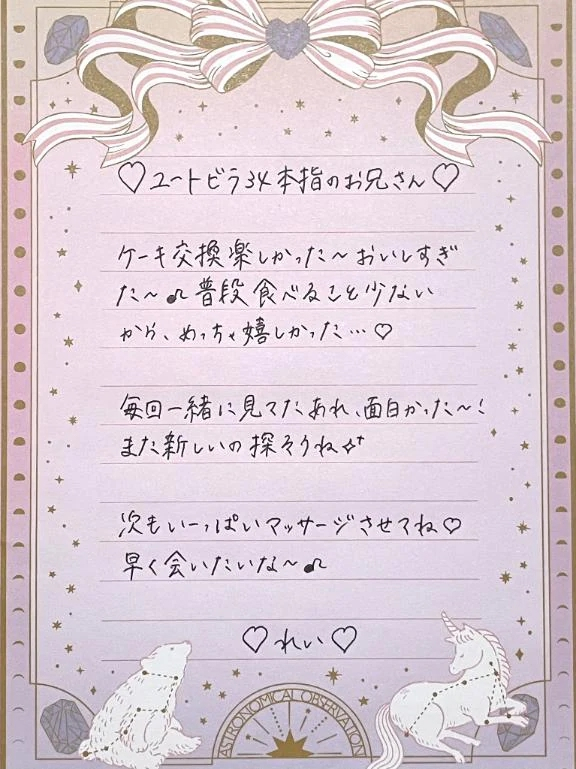 ♡ユートピラ34本指のお兄さん♡
ケーキ交換楽しかった〜おいしすぎ
た〜♫普段食べること少ない
から、めっちゃ嬉しかった…♡
毎回一緒に見てたあれ、面白かった〜!
また新しいの探そうね✧
次もいーっぱいマッサージさせてね♡
早く会いたいな〜♫
♡れい♡
ASTRONOMICAL OBSERVATION